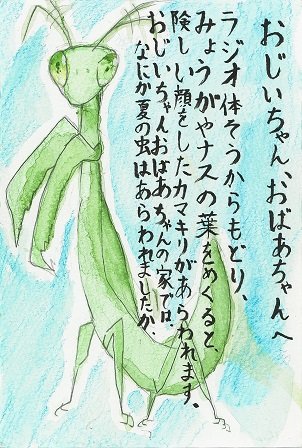 おじいちゃん、おばあちゃんへ
ラジオ体そうからもどり、
みょうがやナスの葉をめくると、
険しい顔をしたカマキリがあらわれます。
おじいちゃんおばあちゃんの家では、
なにか夏の虫はあらわれましたか。